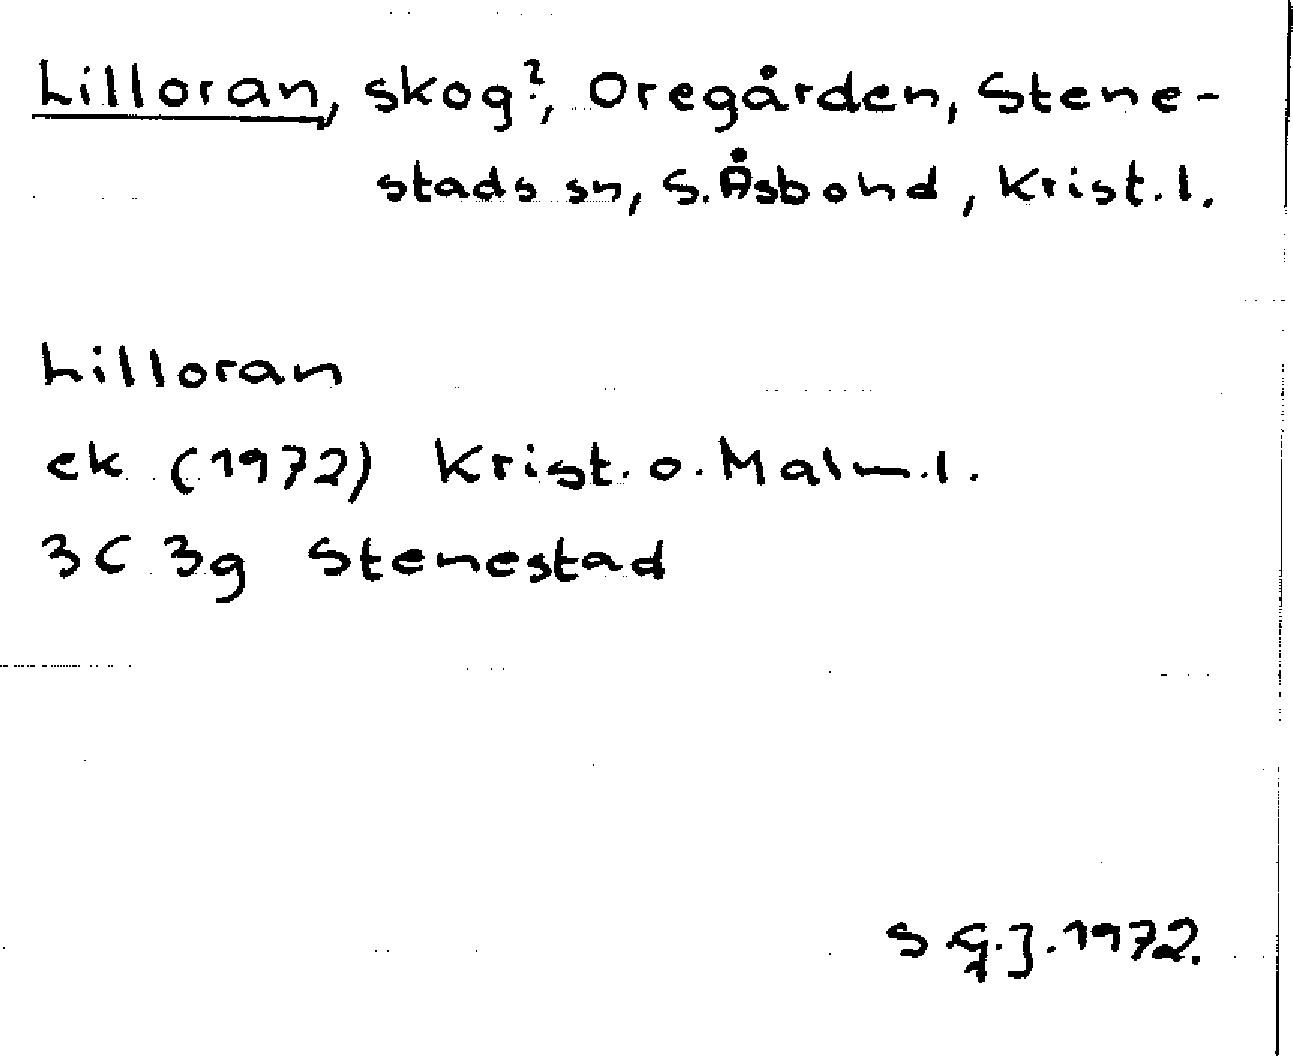 Lilloran, skog?, Oregården, Stene-
stads sn, S. Åsbohd, Krist. l.
Lilloran
ek (1972) Krist. o. Malm. l.
3C 3g Stenestad
S G. J. 1972.